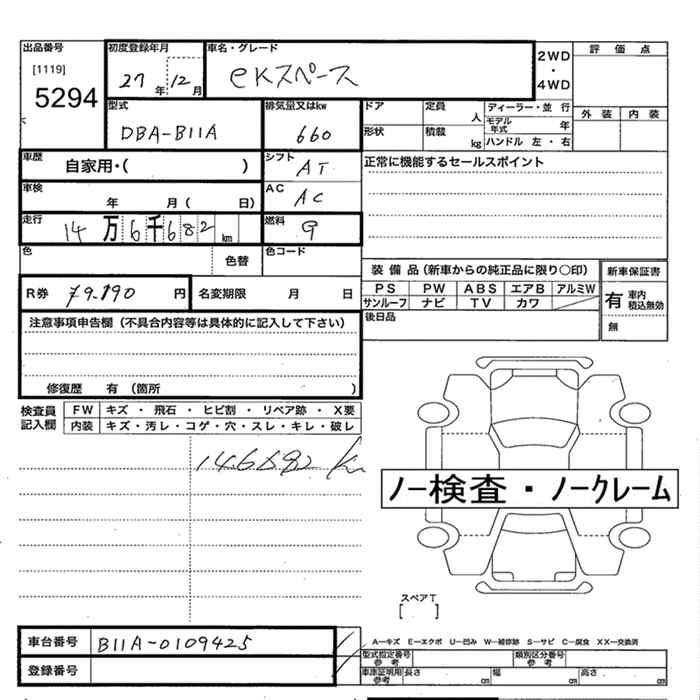 出品番号 初度登録年月 車名・グレード 評価点
[1119] 27年 12月 eKスペース 2WD・4WD
5294 外装 内装
型式 排気量又はkw ドア 定員 人 ディーラー・並行
DBA-B11A 660 形状 積載 kg モデル年式 年
ハンドル 左・右
車歴 自家用・( ) シフト AT 正常に機能するセールスポイント
車検 年 月( 日) AC AC
走行 14万6千682km 燃料 9
色 色替 色コード
装備品(新車からの純正品に限り〇印) 新車保証書
R券 円 名変期限 月 日 PS PW ABS エアB アルミW 有 車内積込無効
サンルーフ ナビ TV カワ 無
注意事項申告欄(不具合内容等は具体的に記入して下さい) 後日品
修復歴 有(箇所 )
検査員記入欄 FW キズ・飛石・ヒビ割・リペア跡・X要
内装 キズ・汚レ・コゲ・穴・スレ・キレ・破レ
146682 km
ノー検査・ノークレーム
スペアT
[ ]
車台番号 B11A-0109425 A－キズ E－エクボ U－凹み W－補修跡 S－サビ C－腐食 XX－交換済
登録番号 型式指定番号 参考 類別区分番号 参考
車庫証明用 参考 長さ cm 幅 cm 高さ cm